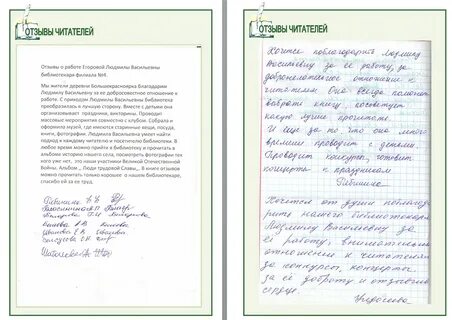 ОТЗЫВЫ ЧИТАТЕЛЕЙ
Отзывы о работе Егоровой Людмилы Васильевны
библиотекаря филиала №4.
Мы жители деревни Большекрасноярка благодарим
Людмилу Васильевну за ее добросовестное отношение к
работе. С приходом Людмилы Васильевны библиотека
преобразилась в лучшую сторону. Вместе с детьми она
организовывает праздники, викторины. Проводит
массовые мероприятия совместно с клубом. Собрала и
оформила музей, где имеются старинные вещи, посуда,
книги, фотографии. Людмила Васильевна умеет найти
подход к каждому читателю и посетителю библиотеки. В
любое время можно прийти в библиотеку и прочитать в
альбоме историю нашего села, посмотреть фотографии тех
кого уже нет, это наши участники Великой Отечественной
Войны. Альбом „ Люди трудовой Славы„. В книге отзывов
можно прочитать только хорошее о нашем библиотекаре,
спасибо ей за ее труд.
ОТЗЫВЫ ЧИТАТЕЛЕЙ
Хочется поблагодарить Людмилу
Васильевну за ее работу, за
доброжелательное отношение к
читателям. Она всегда поможет
выбрать книгу, посоветует
какую лучше прочитать.
И еще за то что она много
времени проводит с детьми.
Проводит конкурсы, готовит
концерты к праздникам.
Хочется от души поблагода-
рить нашего библиотекаря
Людмилу Васильевну за
её работу, внимательное
отношение к читателям
за конкурсы, концерты.
за её доброту и отзывчивое
сердце.